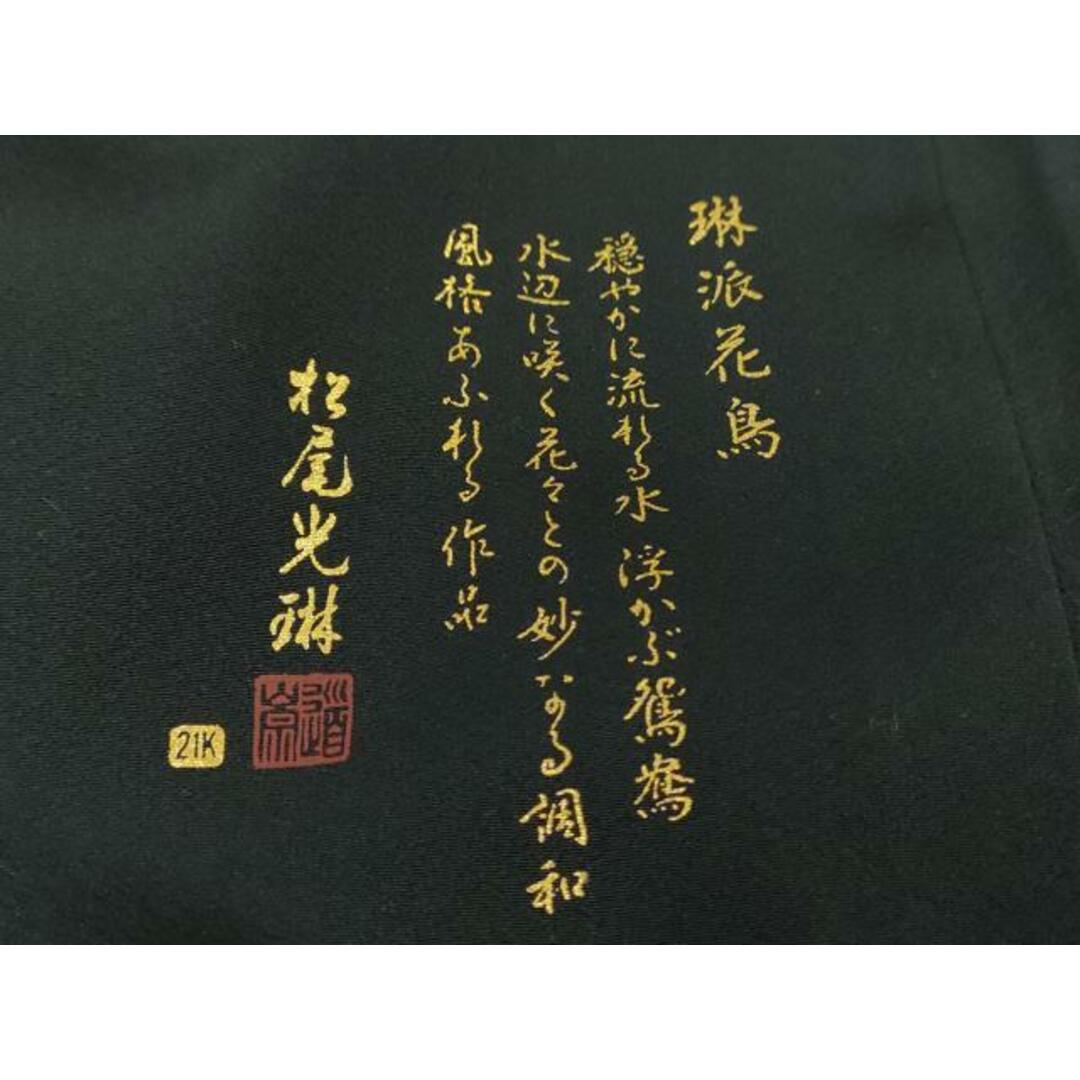 琳派花鳥
穏やかに流れる水 浮かぶ鴛鴦
水辺に咲く花々との妙なる調和
風格あふれる作品
松尾光琳
21K